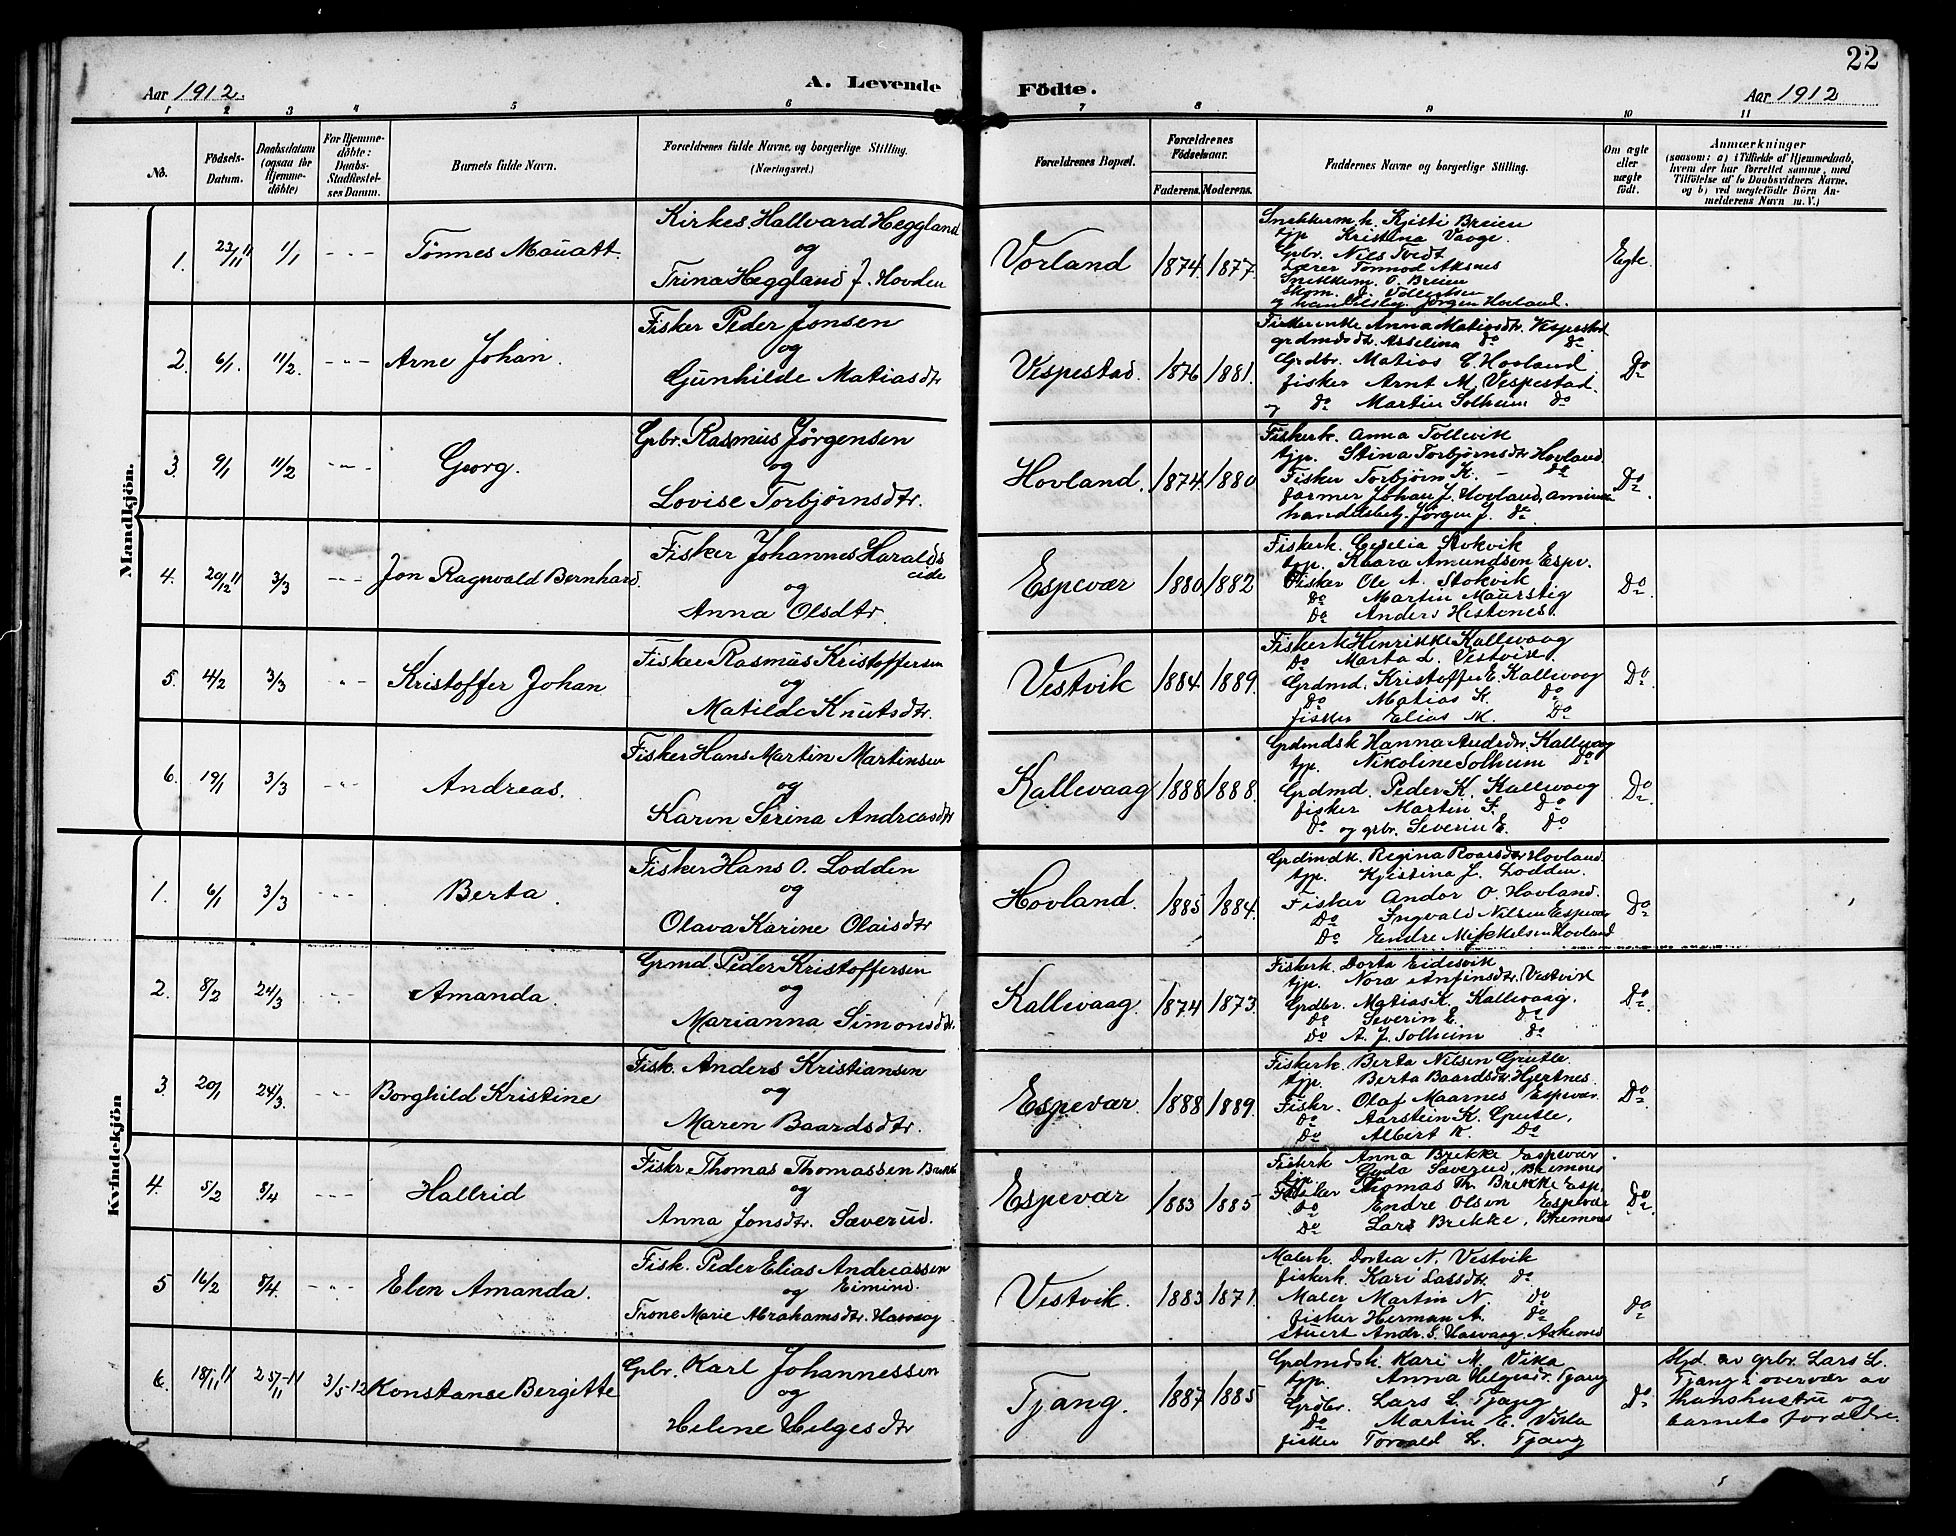 22
Aar 1912.
A. Levende
Födte.
Aar 1912
1 2 3 4 5 6 7 8 9 10 11
No.
Fødsels-Datum.
Daabsdatum (ogsaa for Hjemme-døbte)
For Hjemme-døbte: Daabs-Stadfæstel-ses Datum.
Barnets fulde Navn.
Forældrenes fulde Navne, og borgerlige Stilling. (Næringsvei.)
Forældrenes Bopæl.
Forældrenes Fødselsaar.
Faderens. Moderens.
Faddernes Navne og borgerlige Stilling.
Om ægte eller uægte født.
Anmærkninger
(saasom: a) i Tilfælde af Hjemmedaab,
hvem der har forrettet samme, med
Tilføielse af to Daabsvidners Navne,
og b) ved uægtefødte Børn An-
melderens Navn m. V.)
Mandkjön.
1. 23/11 11 1/1 - " - Tønnes Mauatt
Kirkes. Hallvard Heggland
og
Trina Heggland f. Hovden
Vorland 1874. 1877.
Snekkerm.k. Kjisti Breien
tjp. Kristina Vaage.
Grbr. Nils Tvedt
Lærer Tønmod Aksnes
Snekkerm. O. Breien
og handelsbej. Jørgen Hovland.
Ægte.
2. 6/1. 11/2. - " - Arne Johan.
Fisker Peder Jonsen
og
Gunhilde Matiasdtr
Vespestad. 1876 1881.
Fiskerenke Anna Matiasdtr. Vespestad
grdmdsdtr. Asselina do do
Grdbr. Matias C. Hovland
fisker Arnt M. Vespestad.
og do Martin Solheim do
Do
3. 9/1 11/2 - " - Georg.
Gbr. Rasmus Jørgensen
og
Lovise Torbjørnsdtr.
Hovland. 1874. 1880
Fiskerk. Anna Tollevik
tjp. Stina Torbjørnsdtr Hovland.
Fisker Torbjørn K. - do
farmer Johan J. Hovland,
handelsbetj. Jørgen J. do
Do
4. 20/12 11 3/3 - " - Jon Ragnvald Bernhard.
Fisker Johannes Haralds
eide
og
Anna Olsdtr.
Espevær 1880. 1882
Fiskerk. Cecelia Stokvik
tjp. Kaara Amundsen Espv.
Fisker Ole A. Stokvik
Do Martin Mauerstig
Do Anders Hestenes.
Do
5. 4/2 3/3 " - Kristoffer Johan
Fisker Rasmus Kristoffersen
og
Matilde Knutsdtr.
Vestvik 1884. 1889.
Fiskerk Henrikke Kallevaag
Do Marta L. Vestvik.
Grdmd. Kristoffer E. Kallevaag
Do Matias K. Do
fisker Elias M. Do
Do
6. 19/1 3/3 - " - Andreas.
Fisker Hans Martin Martinsen
og
Karen Serina Andreasdtr
Kallevaag 1888 1888.
Grdmdsk Hanna Andrdtr. Kallevaag
tjp. Nikoline Solheim Do
Grdmd. Peder K. Kallevaag
fisker Martin S. Do
Do og grbr. Severin E. Do
Do
Kvindekjön
1. 6/1 3/3 - " - Berta.
Fisker Hans O. Lodden
og
Olava Karine Olaisdtr
Hovland. 1885 1884.
Grdmdk. Regina Roarsdtr Hovland.
tjp. Kjistina J. Lodden.
Fisker Andor O. Hovland.
Do Ingvald Nilsen Espevær
Do Endre Mikkelsen Hovland
Do
2. 8/2 24/3 - " - Amanda.
Grmd. Peder Kristoffersen
og
Marianna Simonsdtr.
Kallevaag. 1874 1873.
Fiskerk. Dorta Eidesvik
tjp. Nora Anfinsdtr. Vestvik
Grdbr. Matias K. Kallevaag.
Do Severin E. Do
Do A. J. Solheim do
Do
3. 20/1 24/3. - " - Borghild Kristine
Fisk. Anders Kristiansen
og
Maren Baardsdtr.
Espevær. 1888 1889.
Fiskerk. Berta Nilsen Grutle.
tjp. Berta Baardsdtr. Hjertnes.
Fiskr. Olaf Maarnes Espevær.
Do Aarstein K. Grutle,
Do Albert K. Do
Do
4. 5/2 8/4 - " - Hallrid
Fiskr. Thomas Thomassen Brekke
og
Anna Jonsdtr. Sæverud.
Espevær 1883 1885
Fiskrk Anna Brekke Espevær.
tjp. Gyda Sæverud, Bremnes
Fisker Thomas Th. Brekke Esp.
Do Endre Olsen Espevær
Do Lars Brekke, Bremnes
Do
5 16/2 8/4. - " - Elen Amanda.
Fisk. Peder Elias Andreassen
og Eimind.
Trone Marie Abrahamsdtr. Hasvaag
Vestvik. 1883 1871.
Malerk. Dortea N. Vestvik
fiskerk. Kari Larsdtr. do
Maler Martin N. Do
fisker Herman A. Do
stuert Andr. S. Hasvaag Askevold
do
6. 18/11 11 25/11-11 3/5-12 Konstanse Bergitte
Gbr. Karl Johannessen
og
Helene Helgesdtr
Tjang. 1887 1885
Grdmdsk. Kari M. Vika
tjp. Anna Helgesdr. Tjang
Grdbr. Lars L. Tjang
Do Martin E. Vika
fisker Torvald L. Tjang
Do
Hjd. av grbr. Lars L.
Tjang i overvær av
hans hustru og
barnets foreldre.